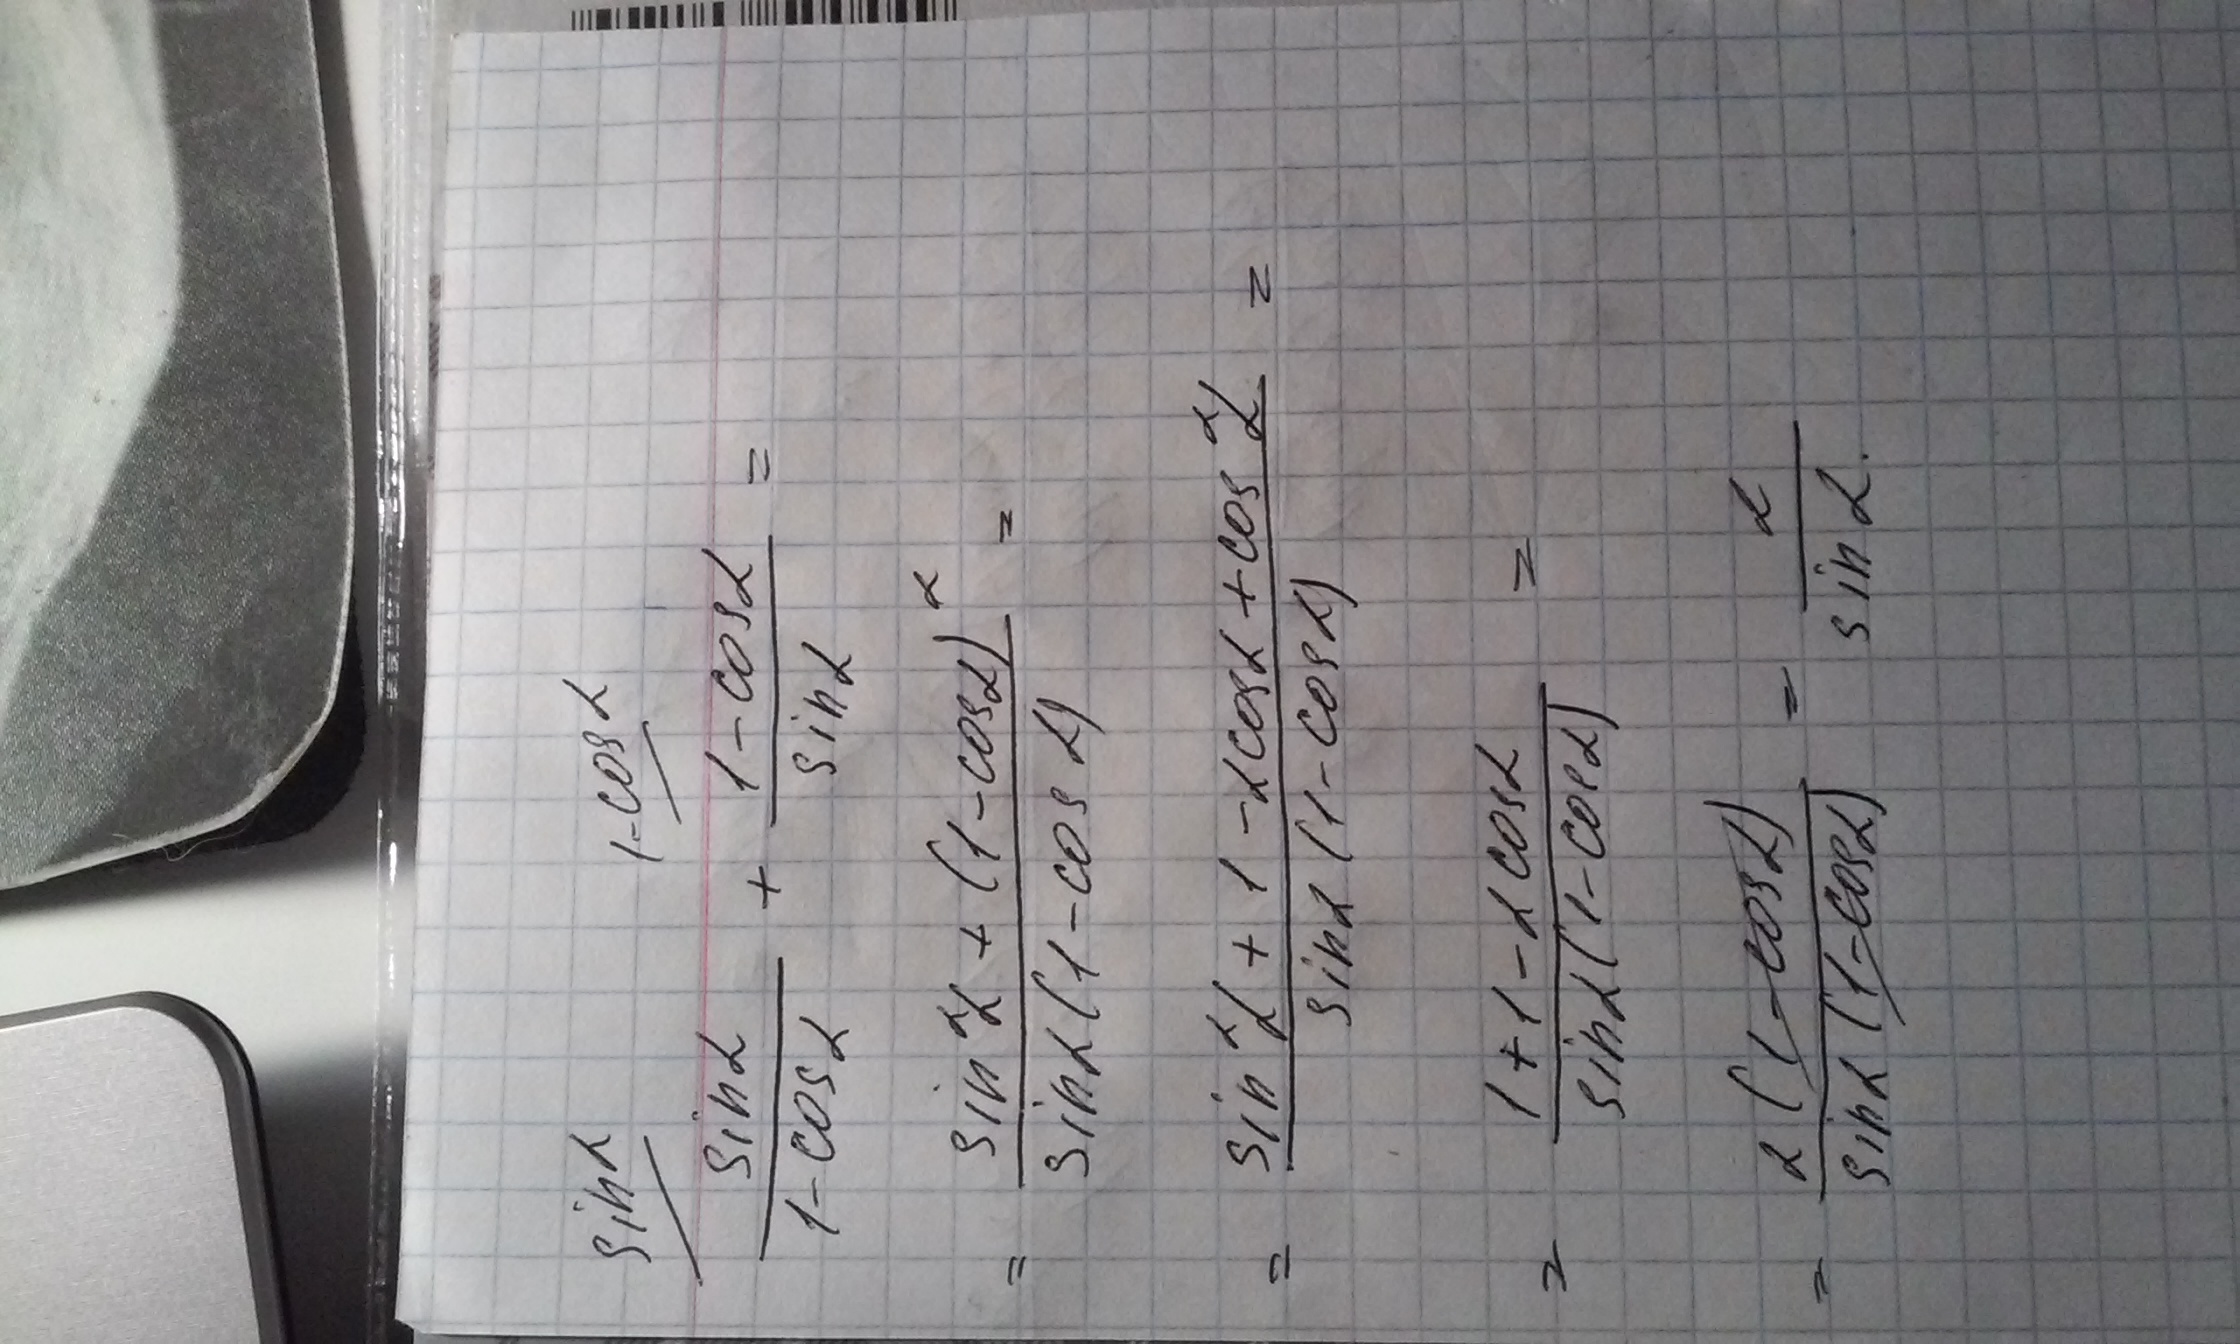 sinα 1-cosα
sinα/(1-cosα) + (1-cosα)/sinα =
= (sin²α + (1-cosα)²)/(sinα(1-cosα)) =
= (sin²α + 1 - 2cosα + cos²α)/(sinα(1-cosα)) =
= (1+1-2cosα)/(sinα(1-cosα)) =
= 2(1-cosα)/(sinα(1-cosα)) = 2/sinα.